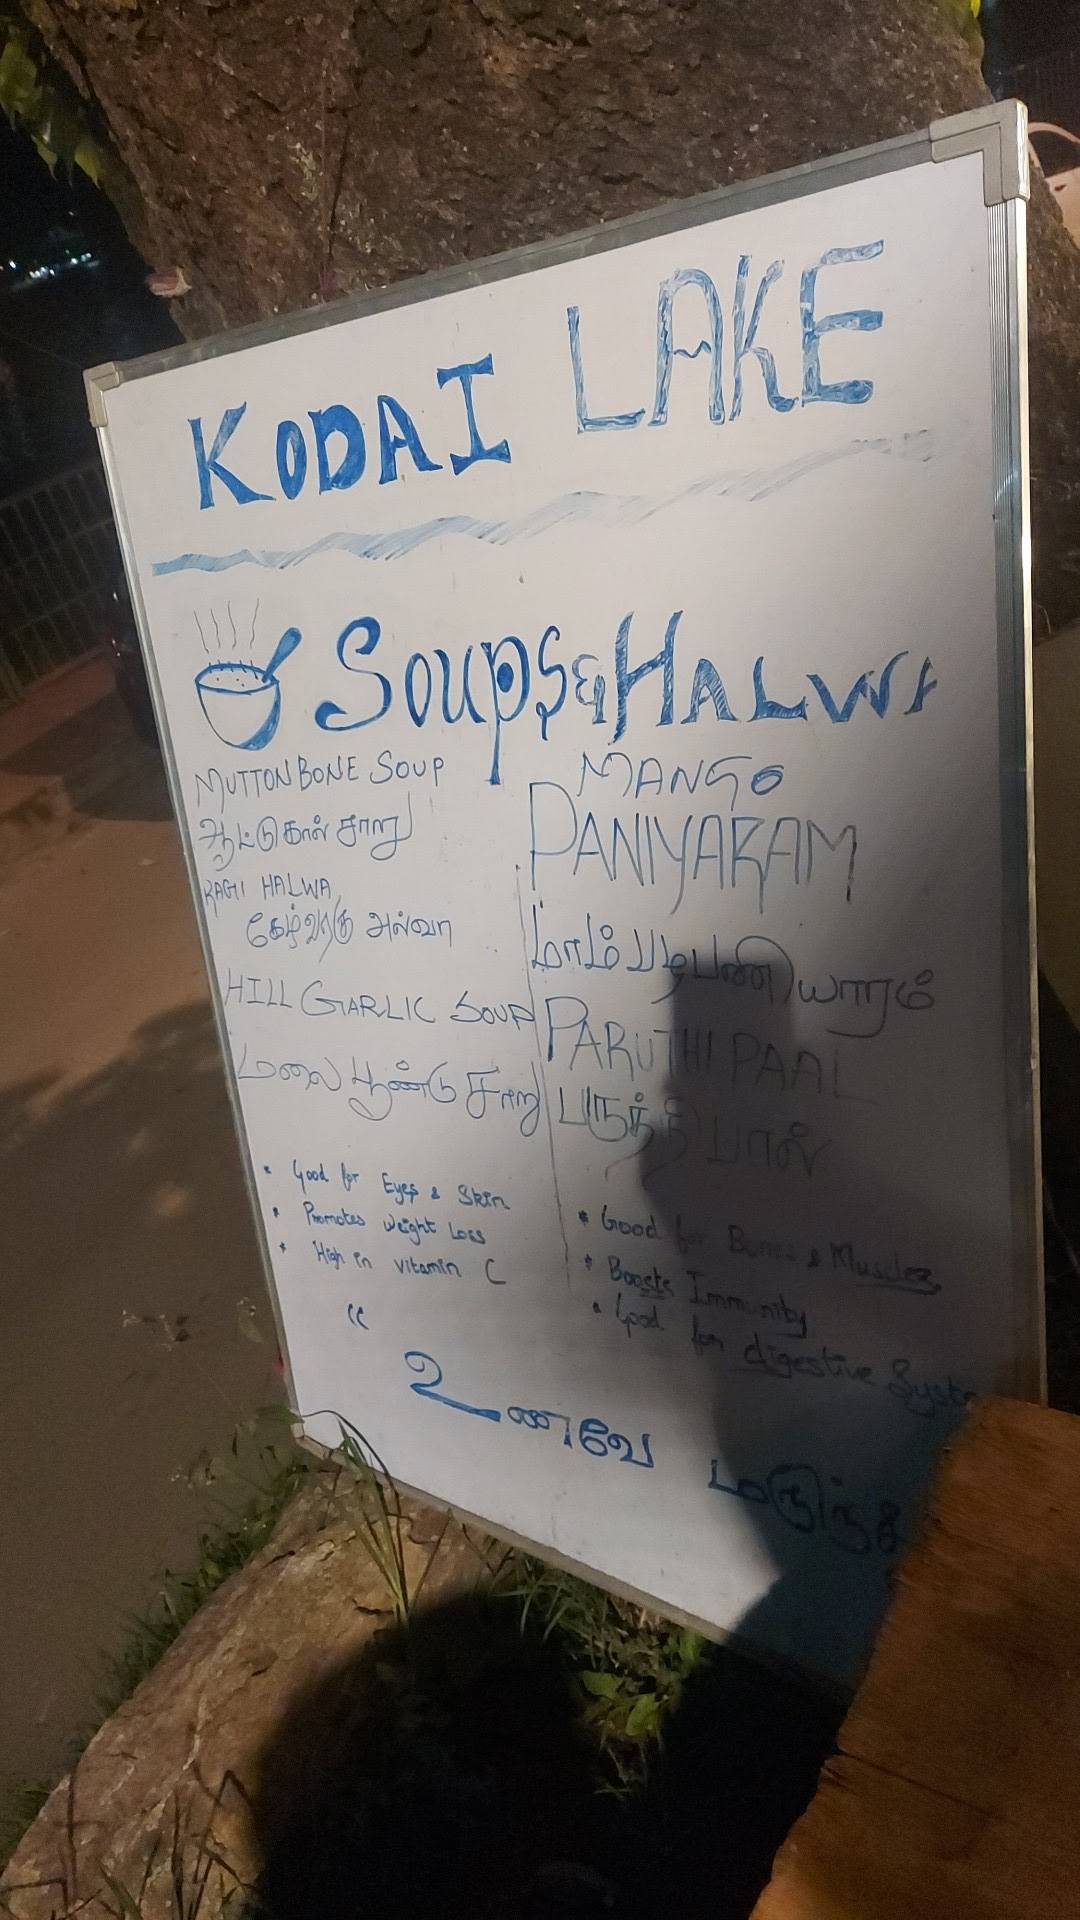 KODAI LAKE
Soups & HALWA
MUTTON BONE SOUP
ஆட்டுகால் சாறு
RAGI HALWA
கேழ்வரகு அல்வா
HILL GARLIC SOUP
மலை பூண்டு சாறு
* Good for Eyes & Skin
* Promotes weight Loss
* High in vitamin C
MANGO
PANIYARAM
மாம்பழபணியாரம்
PARUTHI PAAL
பருத்தி பால்
* Good for Bones & Muscles
* Boosts Immunity
* Good for digestive
“
உணவே